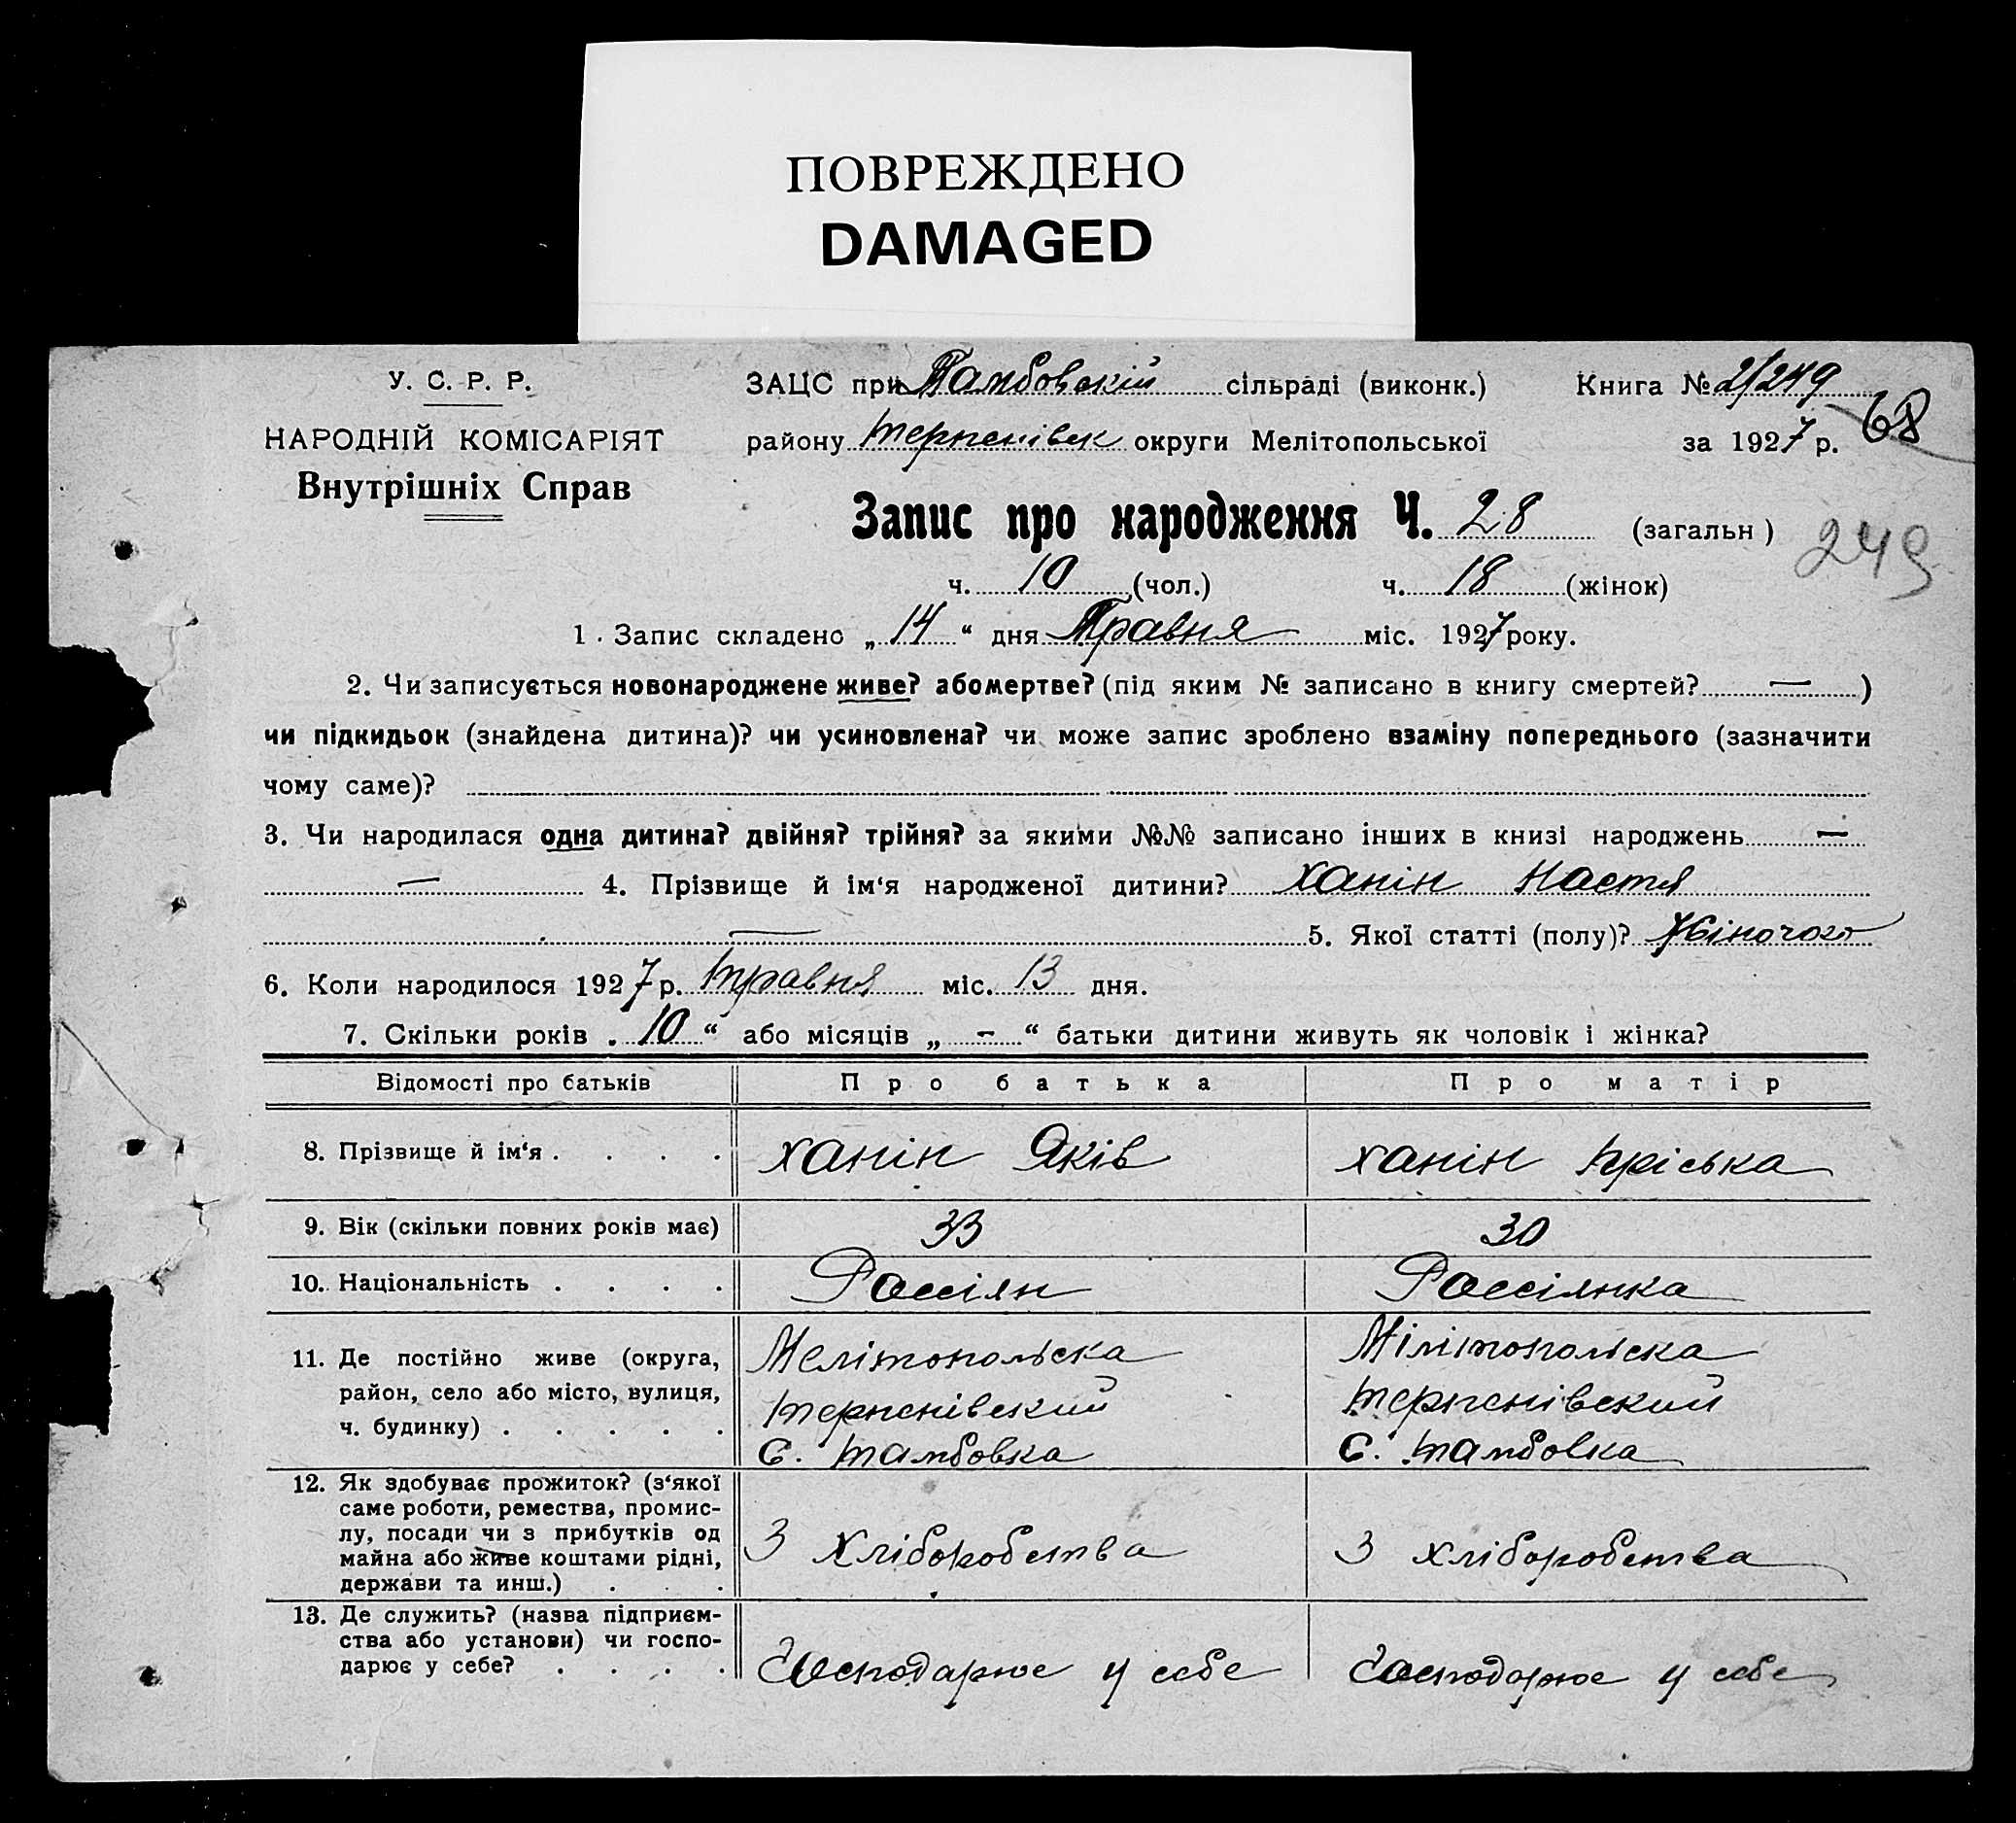 ПОВРЕЖДЕНО
DAMAGED
У. С. Р. Р.
НАРОДНІЙ КОМІСАРІЯТ
Внутрішніх Справ
ЗАЦС при Тамбовскій сільраді (виконк.) Книга № 2/249
68
району Терпенівск округи Мелітопольської за 1927 р.
Запис про народження Ч. 28 (загальн)
249
ч. 10 (чол.) ч. 18 (жінок)
1. Запис складено „14“ дня Травня міс. 1927 року.
2. Чи записується новонароджене живе? або мертве? (під яким № записано в книгу смертей? — )
чи підкидьок (знайдена дитина)? чи усиновлена? чи може запис зроблено взаміну попереднього (зазначити
чому саме)?
3. Чи народилася одна дитина? двійня? трійня? за якими №№ записано інших в книзі народжень —
— 4. Прізвище й ім‘я народженої дитини? Ханін Настя
— 5. Якої статті (полу)? Жіночого
6. Коли народилося 1927 р. Травня міс. 13 дня.
7. Скільки років „10“ або місяців „-“ батьки дитини живуть як чоловік і жінка?
Відомості про батьків Про батька Про матір
8. Прізвище й ім‘я . . . . Ханін Яків Ханін Пріська
9. Вік (скільки повних років має) 33 30
10. Національність . . . . Россіян Россіянка
11. Де постійно живе (округа,
район, село або місто, вулиця,
ч. будинку) . . . . .
Мелітопольска
Терпенівский
С. Тамбовка
Мілітопольска
Терпенівский
С. Тамбовка
12. Як здобуває прожиток? (з‘якої
саме роботи, ремества, промис-
лу, посади чи з прибутків од
майна або живе коштами рідні,
держави та инш.) . . .
З хліборобства
З хліборобства
13. Де служить? (назва підприєм-
ства або установи) чи госпо-
дарює у себе? . . . .
Господарює у себе
Господарює у себе